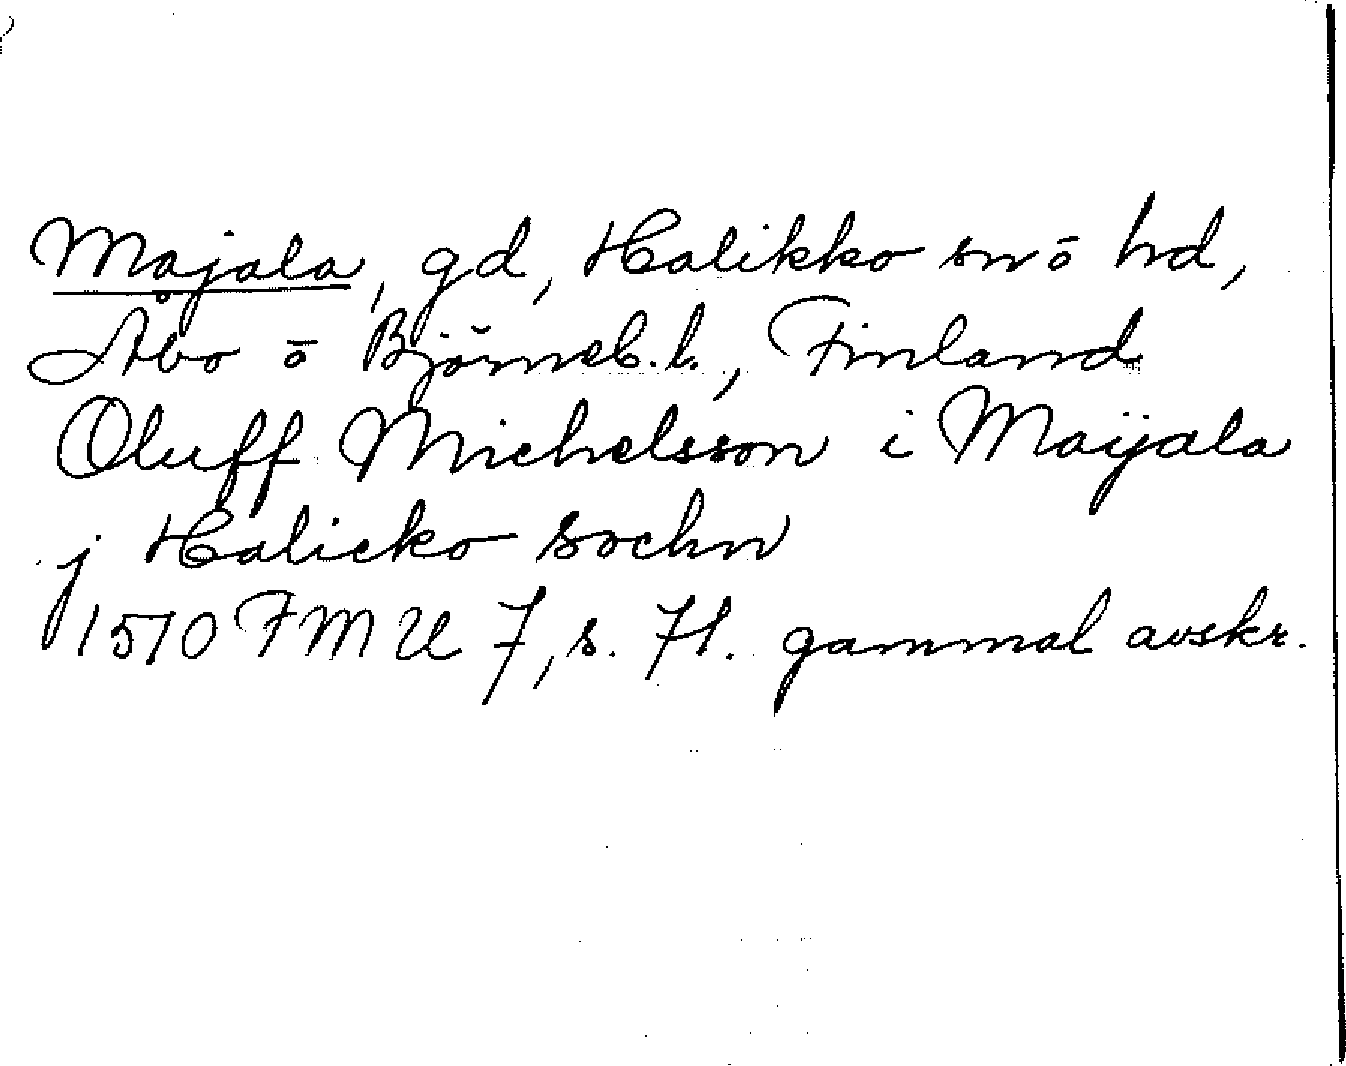 Majala, gd, Halikko sn ō hd,
Åbo ō Björneb. l., Finland
Oluff Michelsson i Maijala
j Halicko sochn
1570 FMU 7, s. 71. gammal avskr.